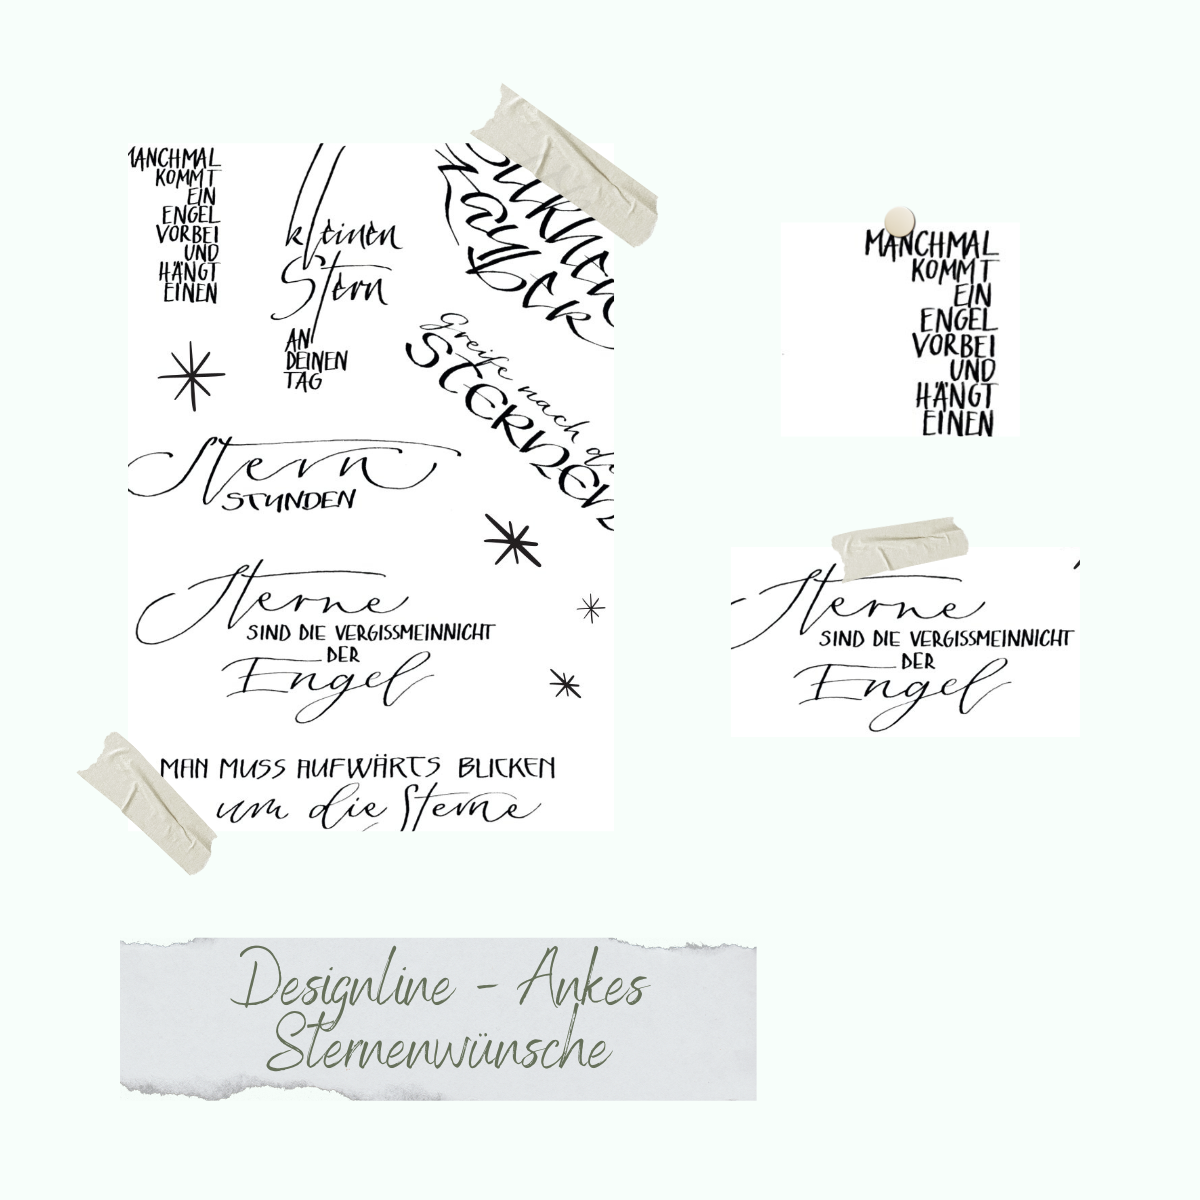 MANCHMAL
KOMMT
EIN
ENGEL
VORBEI
UND
HÄNGT
EINEN
kleinen
Stern
AN
DEINEN
TAG
ZAUBER
Greife nach de
STERNEN
Stern
STUNDEN
Sterne
SIND DIE VERGISSMEINNICHT
DER
Engel
MAN MUSS AUFWÄRTS BLICKEN
um die Sterne
MANCHMAL
KOMMT
EIN
ENGEL
VORBEI
UND
HÄNGT
EINEN
Sterne
SIND DIE VERGISSMEINNICHT
DER
Engel
Designline - Ankes
Sternenwünsche